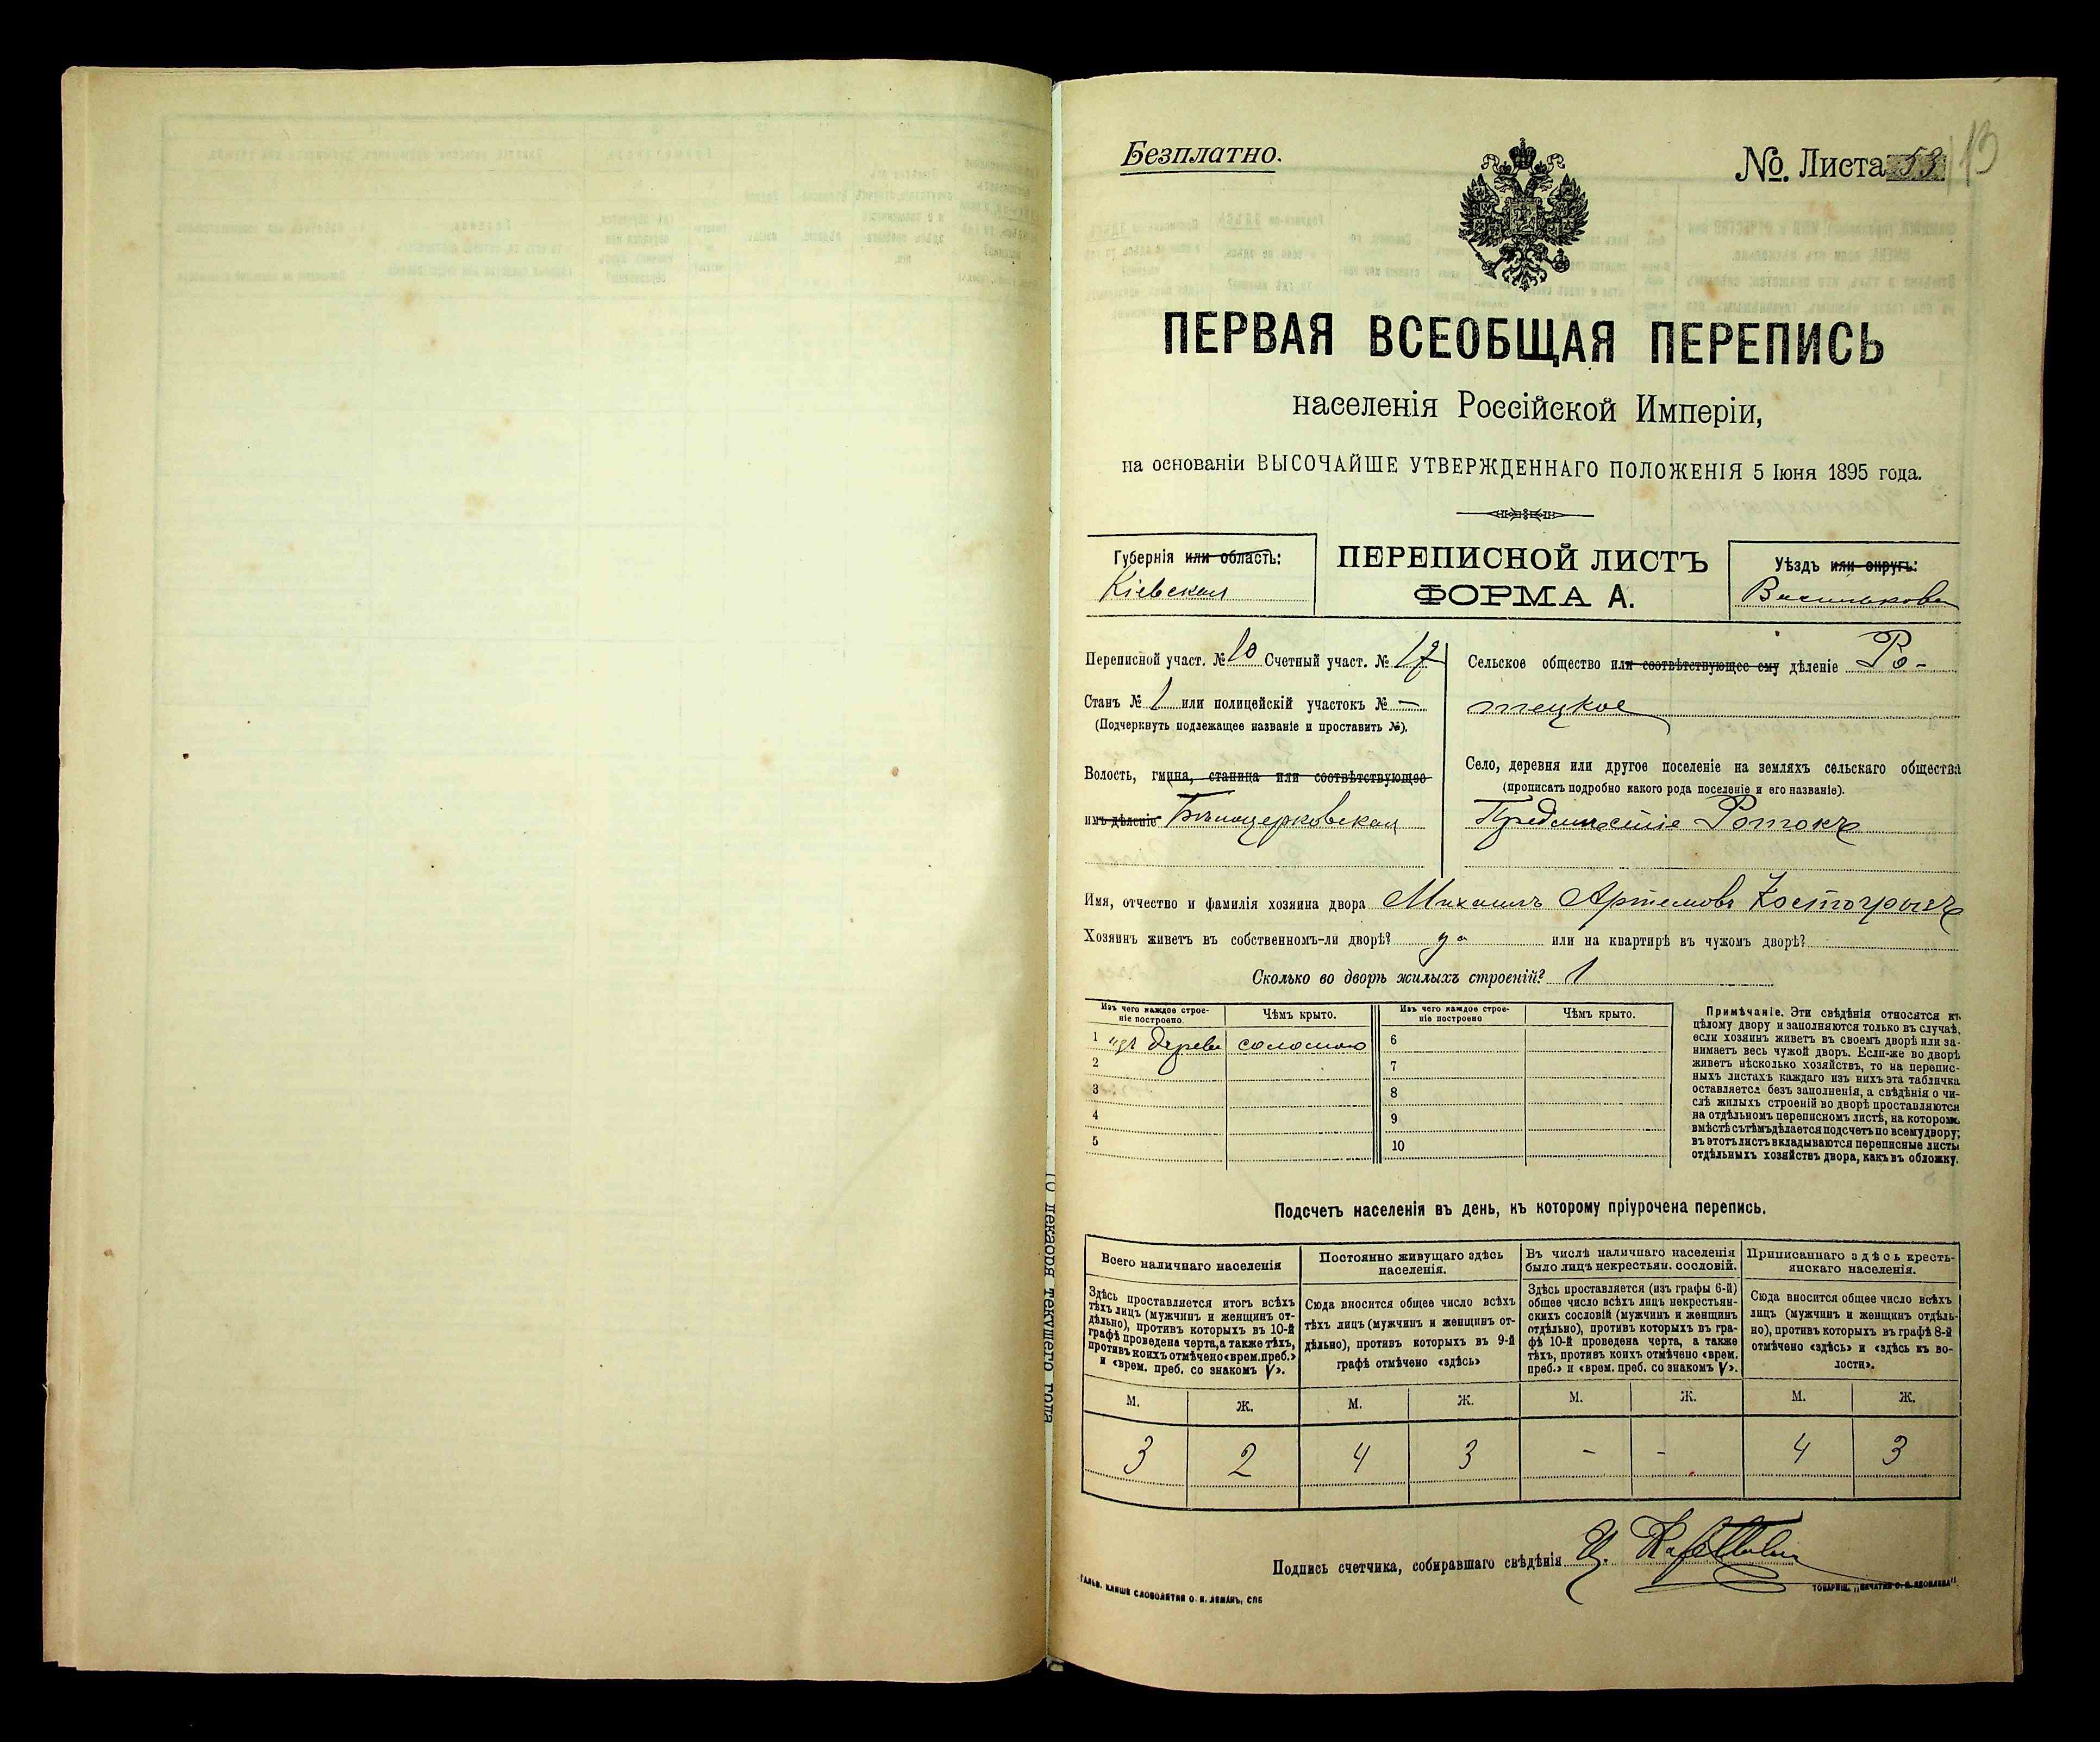 Безплатно.
№ Листа 53
13
ПЕРВАЯ ВСЕОБЩАЯ ПЕРЕПИСЬ
населенія Россійской Имперіи,
на основаніи ВЫСОЧАЙШЕ УТВЕРЖДЕННАГО ПОЛОЖЕНІЯ 5 Іюня 1895 года.
Губернія или область:
Кіевская
ПЕРЕПИСНОЙ ЛИСТЪ
ФОРМА А.
Уѣздъ или округъ:
Васильковск
Переписной участ. № 10 Счетный участ. № 17
Станъ № 1 или полицейскій участокъ № —
(Подчеркнуть подлежащее названіе и проставить №).
Волость, гмина, станица или соотвѣтствующее
имъ дѣленіе Бѣлоцерковская
Сельское общество или соотвѣтствующее ему дѣленіе Ро-
тецкое
Село, деревня или другое поселеніе на земляхъ сельскаго общества
(прописать подробно какого рода поселеніе и его названіе).
Предмѣстіе Ротокъ
Имя, отчество и фамилія хозяина двора Михаилъ Артемовъ Костогрызъ
Хозяинъ живетъ въ собственномъ-ли дворѣ? да или на квартирѣ въ чужомъ дворѣ?
Сколько во дворѣ жилыхъ строеній? 1
Изъ чего каждое строе-
ніе построено.
Чѣмъ крыто.
Изъ чего каждое строе-
ніе построено
Чѣмъ крыто.
1 изъ дерева соломою 6
2 7
3 8
4 9
5 10
Примѣчаніе. Эти свѣдѣнія относятся къ
цѣлому двору и заполняются только въ случаѣ,
если хозяинъ живетъ въ своемъ дворѣ или за-
нимаетъ весь чужой дворъ. Если-же во дворѣ
живетъ нѣсколько хозяйствъ, то на перепис-
ныхъ листахъ каждаго изъ нихъ эта табличка
оставляется безъ заполненія, а свѣдѣнія о чи-
слѣ жилыхъ строеній во дворѣ проставляются
на отдѣльномъ переписномъ листѣ, на которомъ
вмѣстѣ съ тѣмъ дѣлается подсчетъ по всему двору;
въ этотъ листъ вкладываются переписные листы
отдѣльныхъ хозяйствъ двора, какъ въ обложку.
Подсчетъ населенія въ день, къ которому пріурочена перепись.
Всего наличнаго населенія
Здѣсь проставляется итогъ всѣхъ
тѣхъ лицъ (мужчинъ и женщинъ от-
дѣльно), противъ которыхъ въ 10-й
графѣ проведена черта, а также тѣхъ,
противъ коихъ отмѣчено «врем. преб.»
и «врем. преб. со знакомъ V».
Постоянно живущаго здѣсь
населенія.
Сюда вносится общее число всѣхъ
тѣхъ лицъ (мужчинъ и женщинъ от-
дѣльно), противъ которыхъ въ 9-й
графѣ отмѣчено «здѣсь»
Въ числѣ наличнаго населенія
было лицъ некрестьян. сословій.
Здѣсь проставляется (изъ графы 6-й)
общее число всѣхъ лицъ некрестьян-
скихъ сословій (мужчинъ и женщинъ
отдѣльно), противъ которыхъ въ гра-
фѣ 10-й проведена черта, а также
тѣхъ, противъ коихъ отмѣчено «врем.
преб.» и «врем. преб. со знакомъ V».
Приписаннаго здѣсь кресть-
янскаго населенія.
Сюда вносится общее число всѣхъ
лицъ (мужчинъ и женщинъ отдѣль-
но), противъ которыхъ въ графѣ 8-й
отмѣчено «здѣсь» и «здѣсь къ во-
лости».
М. Ж. М. Ж. М. Ж. М. Ж.
3 2 4 3 - - 4 3
Подпись счетчика, собиравшаго свѣдѣнія
ГАЛЬВ. КЛИШЕ СЛОВОЛИТНИ О. И. ЛЕМАНЪ, СПБ
ТОВАРИЩ. „ПЕЧАТНЯ С. П. ЯКОВЛЕВА“.
10 декабря текущего года